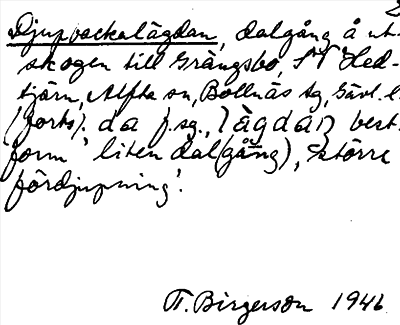 Djupbackalägdan, dalgång å ut-
skogen till Grängsbo, SV Hed-
tjärn, Alfta sn, Bollnäs tg, Gävl. l.
(forts). da f.sg., lägdan best.
form 'liten dal(gång), större
fördjupning'.
T. Birgerson 1946